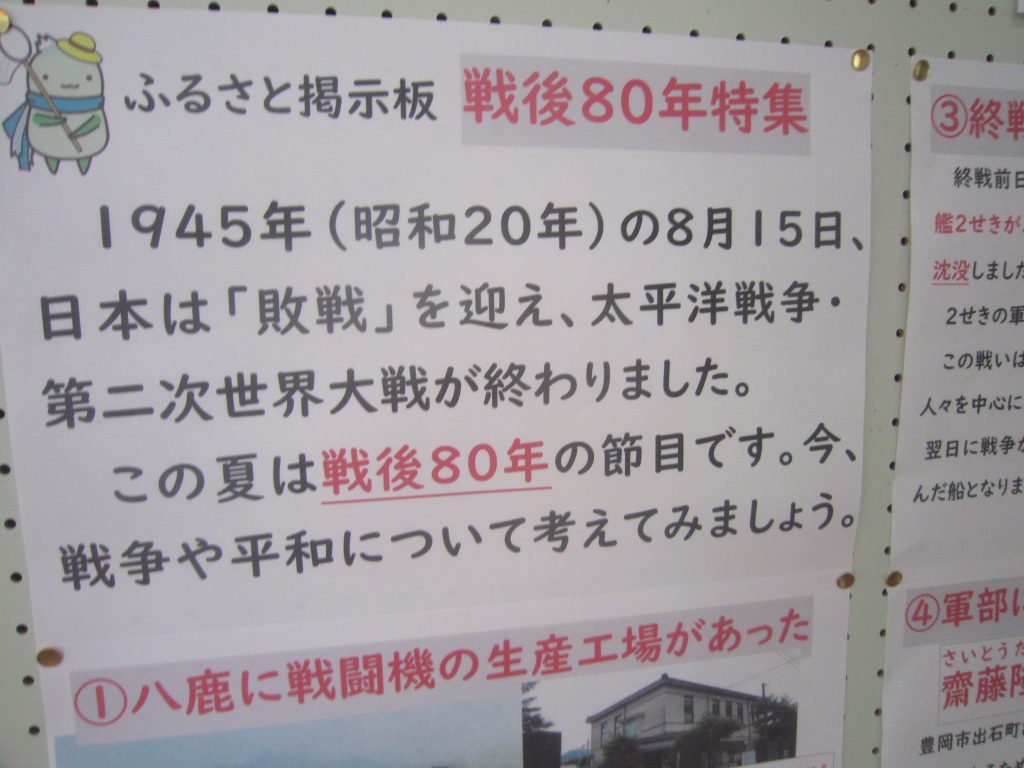 ふるさと掲示板 戦後80年特集
1945年(昭和20年)の8月15日、
日本は「敗戦」を迎え、太平洋戦争・
第二次世界大戦が終わりました。
この夏は戦後80年の節目です。今、
戦争や平和について考えてみましょう。
①八鹿に戦闘機の生産工場があった
③終戦
終戦前日
艦2せきが
沈没しました
2せきの軍
この戦いは
人々を中心に
翌日に戦争が
んだ船となりま
④軍部に
さいとうた
齋藤隆
豊岡市出石町